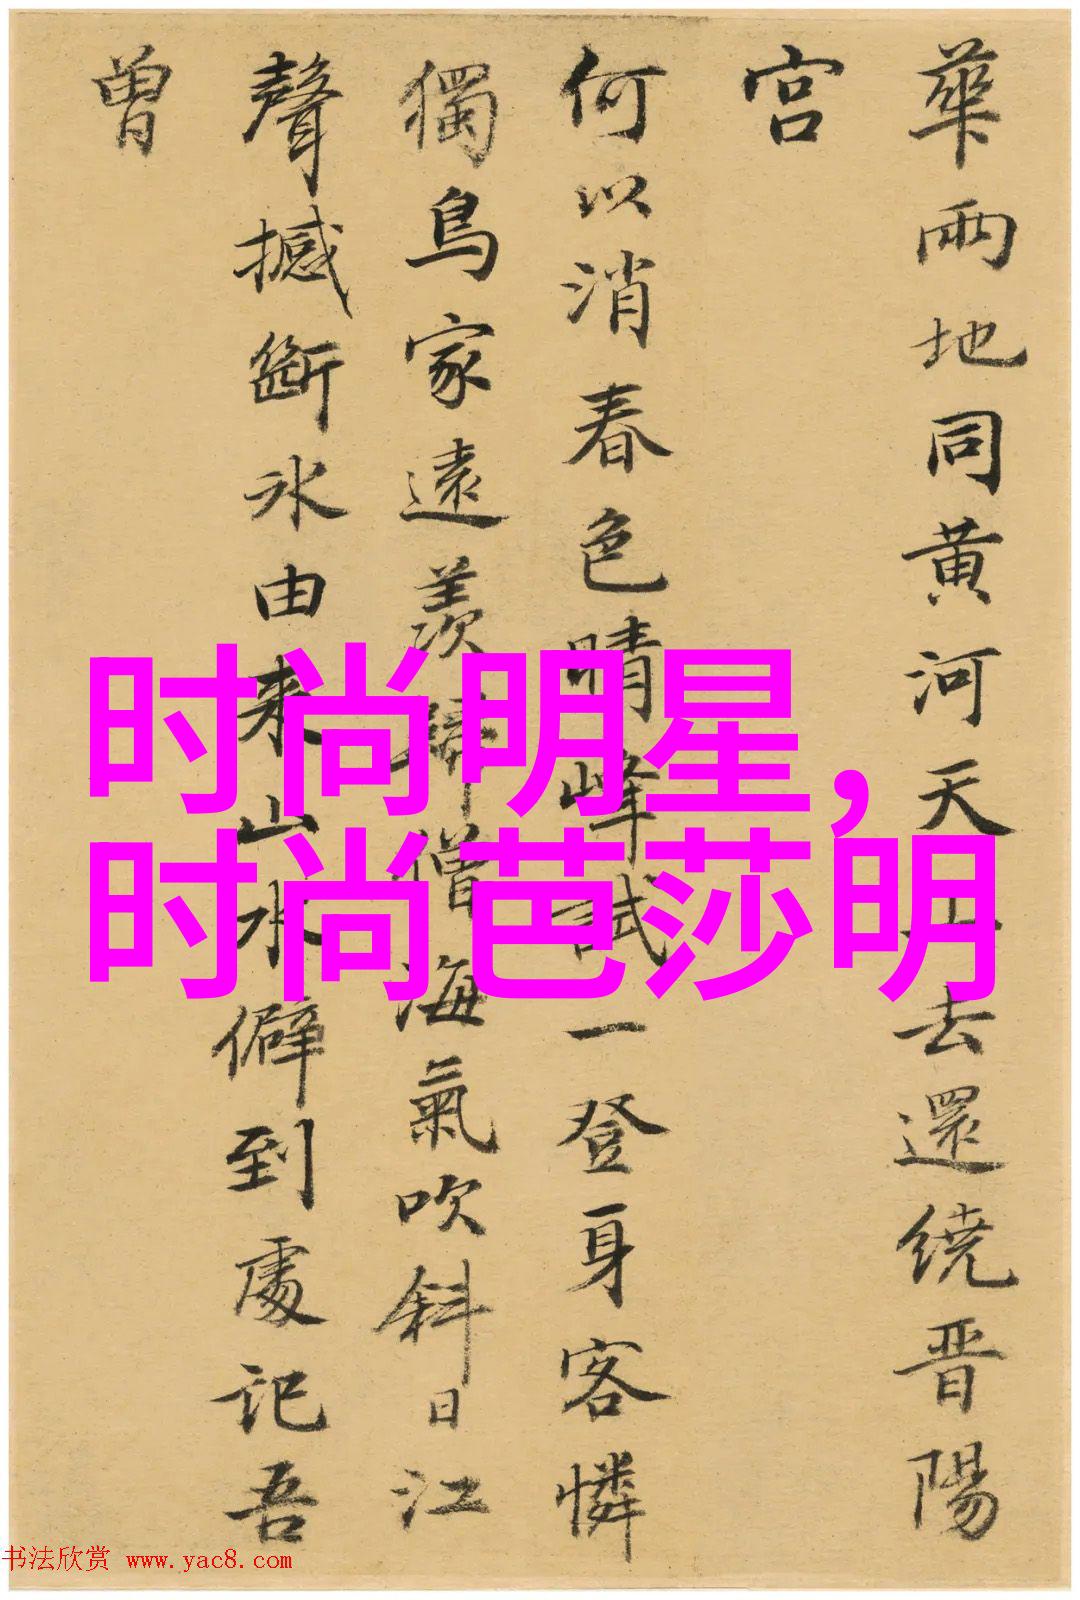 華兩地同黄河天上去還繞晋陽
宫
何以消春色晴峰試一登身客憐
獨鳥家遠羡歸僧海氣吹斜日江
聲撼斷冰由来山水僻到處記吾
曽
时尚明星，
时尚芭莎明
书法欣赏 www.yac8.com